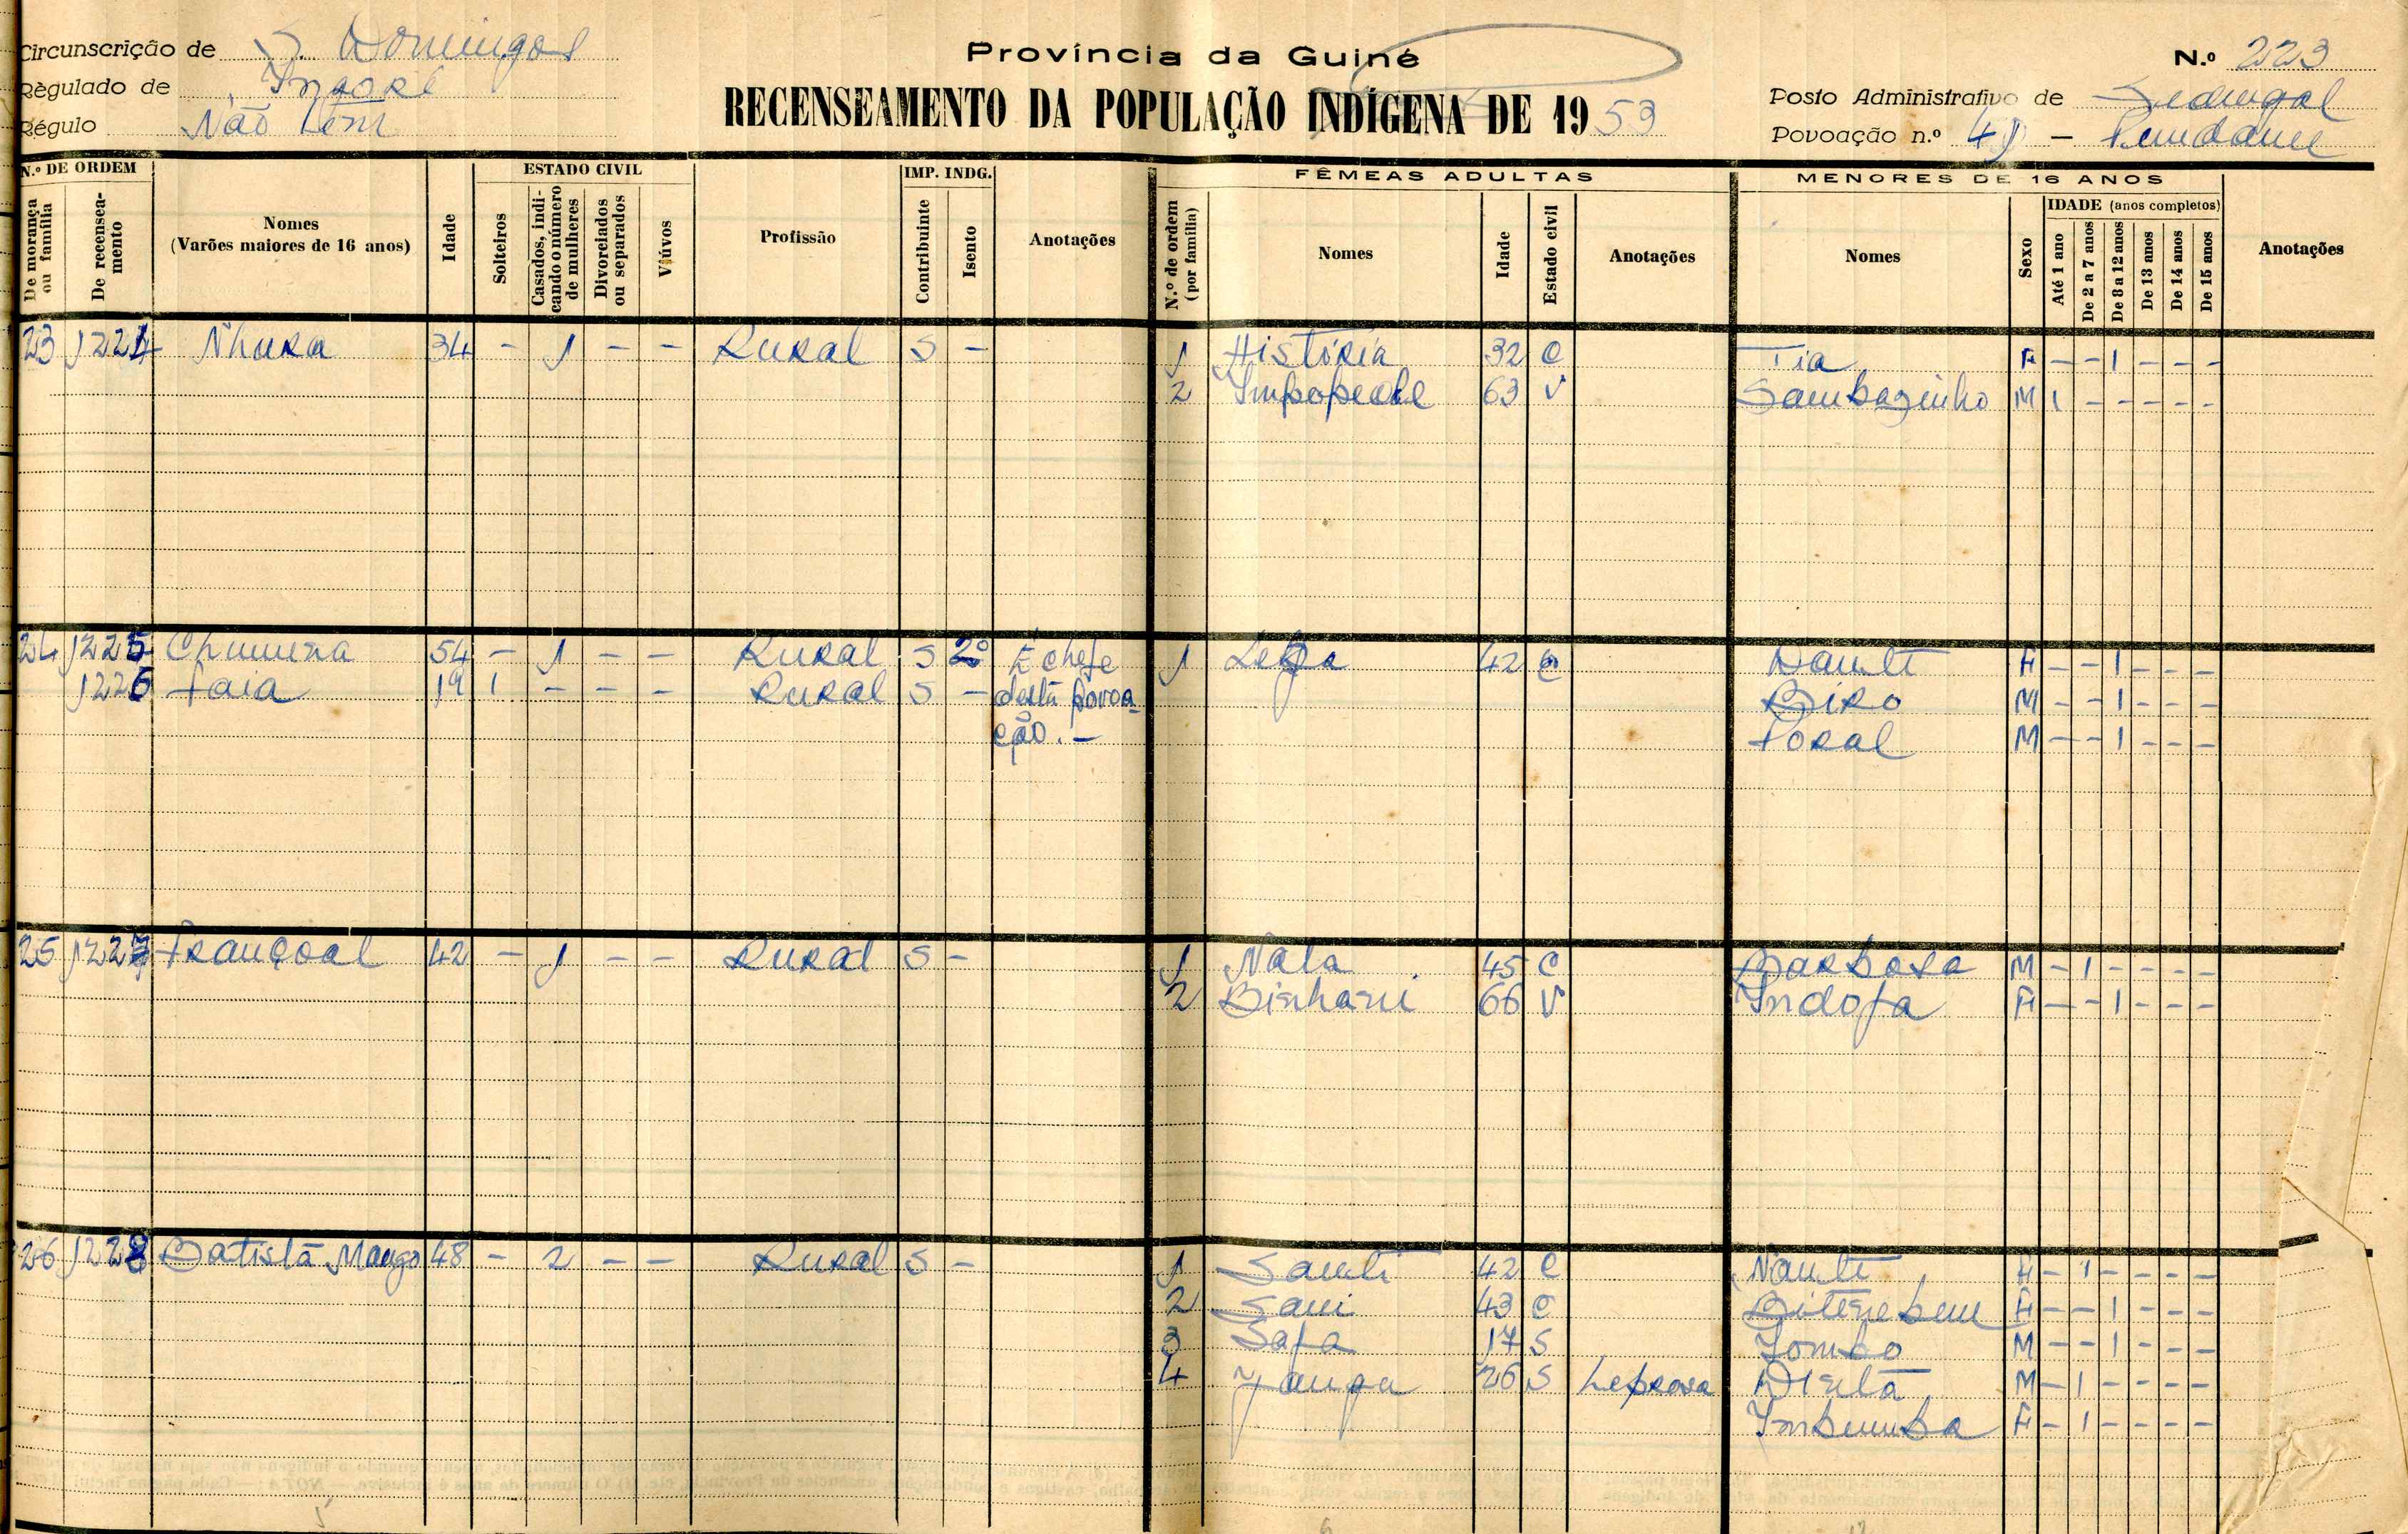 Circunscrição de S. Domingos
Regulado de Ingoré
Régulo Não tem
Província da Guiné
RECENSEAMENTO DA POPULAÇÃO INDÍGENA DE 1953
N.º 223
Posto Administrativo de Sedengal
Povoação n.º 49 -
N.º DE ORDEM
De morança ou família
De recenseamento
Nomes
(Varões maiores de 16 anos)
Idade
ESTADO CIVIL
Solteiros
Casados, indicando o número de mulheres
Divorciados ou separados
Viúvos
Profissão
IMP. INDG.
Contribuinte
Isento
Anotações
FÊMEAS ADULTAS
N.º de ordem (por família)
Nomes
Idade
Estado civil
Anotações
MENORES DE 16 ANOS
Nomes
Sexo
IDADE (anos completos)
Até 1 ano
De 2 a 7 anos
De 8 a 12 anos
De 13 anos
De 14 anos
De 15 anos
Anotações
23 1224 Nhura 34 - 1 - - Rural S - 1 História 32 C Tia F - - 1 - - -
2 63 V Sambazinho M 1 - - - - -
24 1225 54 - 1 - - Rural S 2º É chefe 1 42 C F - - 1 - - -
1226 19 1 - - - Rural S - desta povoa- Biro M - - 1 - - -
ção. - M - - 1 - - -
25 1227 Françoal 42 - 1 - - Rural S - 1 Nala 45 C Barbosa M - 1 - - - -
2 Binhani 66 V Indofa F - - 1 - - -
26 1228 Batista Mango 48 - 2 - - Rural S - 1 Santi 42 C Nanti F - 1 - - - -
2 43 C F - - 1 - - -
3 Safa 17 S Jombo M - - 1 - - -
4 26 S Leprosa M - 1 - - - -
F - 1 - - - -